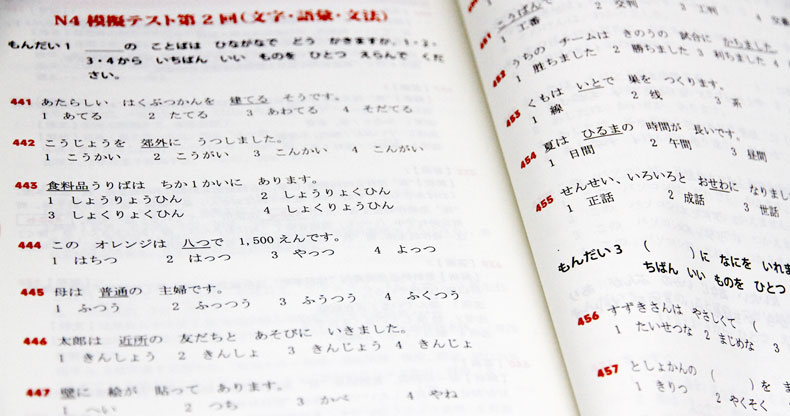 N4 模擬テスト第2回(文字・語彙・文法)
もんだい1 ＿＿＿の ことばは ひながなで どう かきますか。1・2・
3・4から いちばん いい ものを ひとつ えらんで くだ
さい。
441 あたらしい はくぶつかんを 建てる そうです。
1 あてる 2 たてる 3 あわてる 4 そだてる
442 こうじょうを 郊外に うつしました。
1 こうかい 2 こうがい 3 こんかい 4 こんがい
443 食料品うりばは ちか1かいに あります。
1 しょうりょうひん 2 しょうりょくひん
3 しょくりょくひん 4 しょくりょうひん
444 この オレンジは 八つで 1,500えんです。
1 はちつ 2 はっつ 3 やっつ 4 よっつ
445 母は 普通の 主婦です。
1 ふつう 2 ふっつう 3 ふうつう 4 ふくつう
446 太郎は 近所の 友だちと あそびに いきました。
1 きんしょう 2 きんしょ 3 きんじょう 4 きんじょ
447 壁に 絵が 貼って あります。
1 へい 2 つち 3 かべ 4 やね
451 こうばんで
1 工番 2 交判 3 工判 4 交番
452 うちの チームは きのうの 試合に かちました
1 胜ちました 2 勝ちました 3 利ちました 4
453 くもは いとで 巣を つくります。
1 線 2 线 3 系
454 夏は ひる圭の 時間が 長いです。
1 日間 2 午間 3 昼間
455 せんせい、いろいろと おせわに なりまし
1 正話 2 成話 3 世話
もんだい3 ( )に なにを いれま
ちばん いい ものを ひとつ
456 すずきさんは やさしくて (
1 たいせつな 2 まじめな 3
457 としょかんの ( )を ま
1 きりつ 2 やくそく